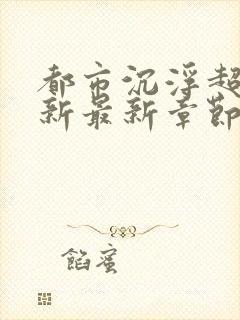 都市沉浮超
新最新章節
馅蜜